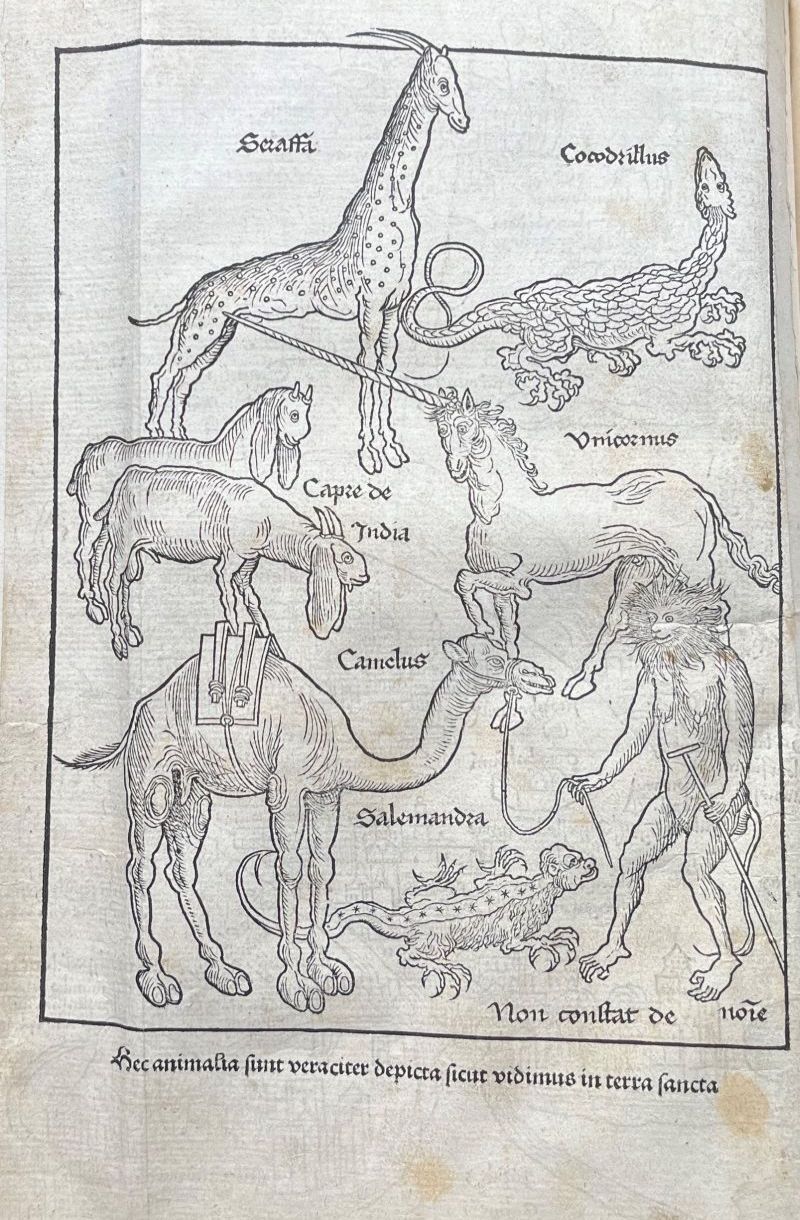 Seraffa
Cocodrillus
Vnicornus
Capre de
India
Camelus
Salemandra
Non constat de noīe
Hec animalia sunt veraciter depicta sicut vidimus in terra sancta